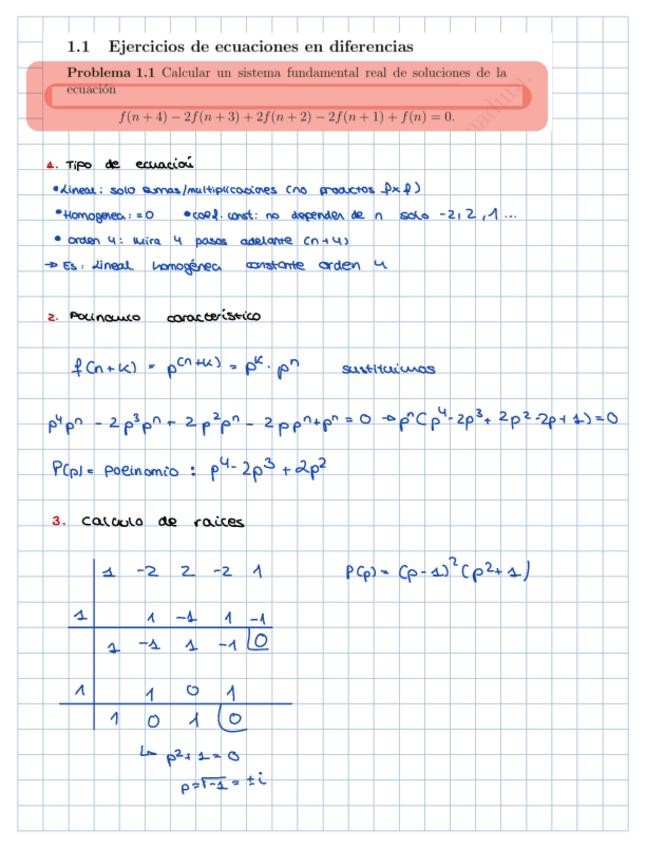 1.1 Ejercicios de ecuaciones en diferencias
Problema 1.1 Calcular un sistema fundamental real de soluciones de la
ecuación
f(n + 4) − 2f(n + 3) + 2f(n + 2) − 2f(n + 1) + f(n) = 0.
1. Tipo de ecuación
• Lineal: solo sumas/multiplicaciones (no productos fxf)
• Homogenea: =0 • coef. const: no depender de n solo -2, 2, 1 ...
• orden 4: mira 4 pasos adelante (n+4)
→ Es: Lineal homogénea constante orden 4
2. Polinomio característico
f(n+k) = p^(n+k) = p^k · p^n sustituimos
p^4p^n - 2p^3p^n + 2p^2p^n - 2pp^n + p^n = 0 → p^n(p^4 - 2p^3 + 2p^2 - 2p + 1) = 0
P(p) = polinomio : p^4 - 2p^3 + 2p^2
3. Calculo de raices
1 -2 2 -2 1 P(p) = (p-1)^2(p^2+1)
1 1 -1 1 -1
1 -1 1 -1 0
1 1 0 1
1 0 1 0
↳ p^2 + 1 = 0
p = √-1 = ±i